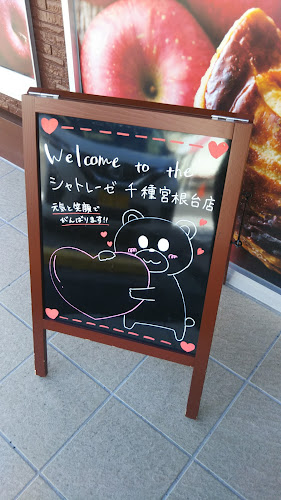 Welcome to the
シャトレーゼ 千種宮根台店
元気と笑顔で
がんばります!!